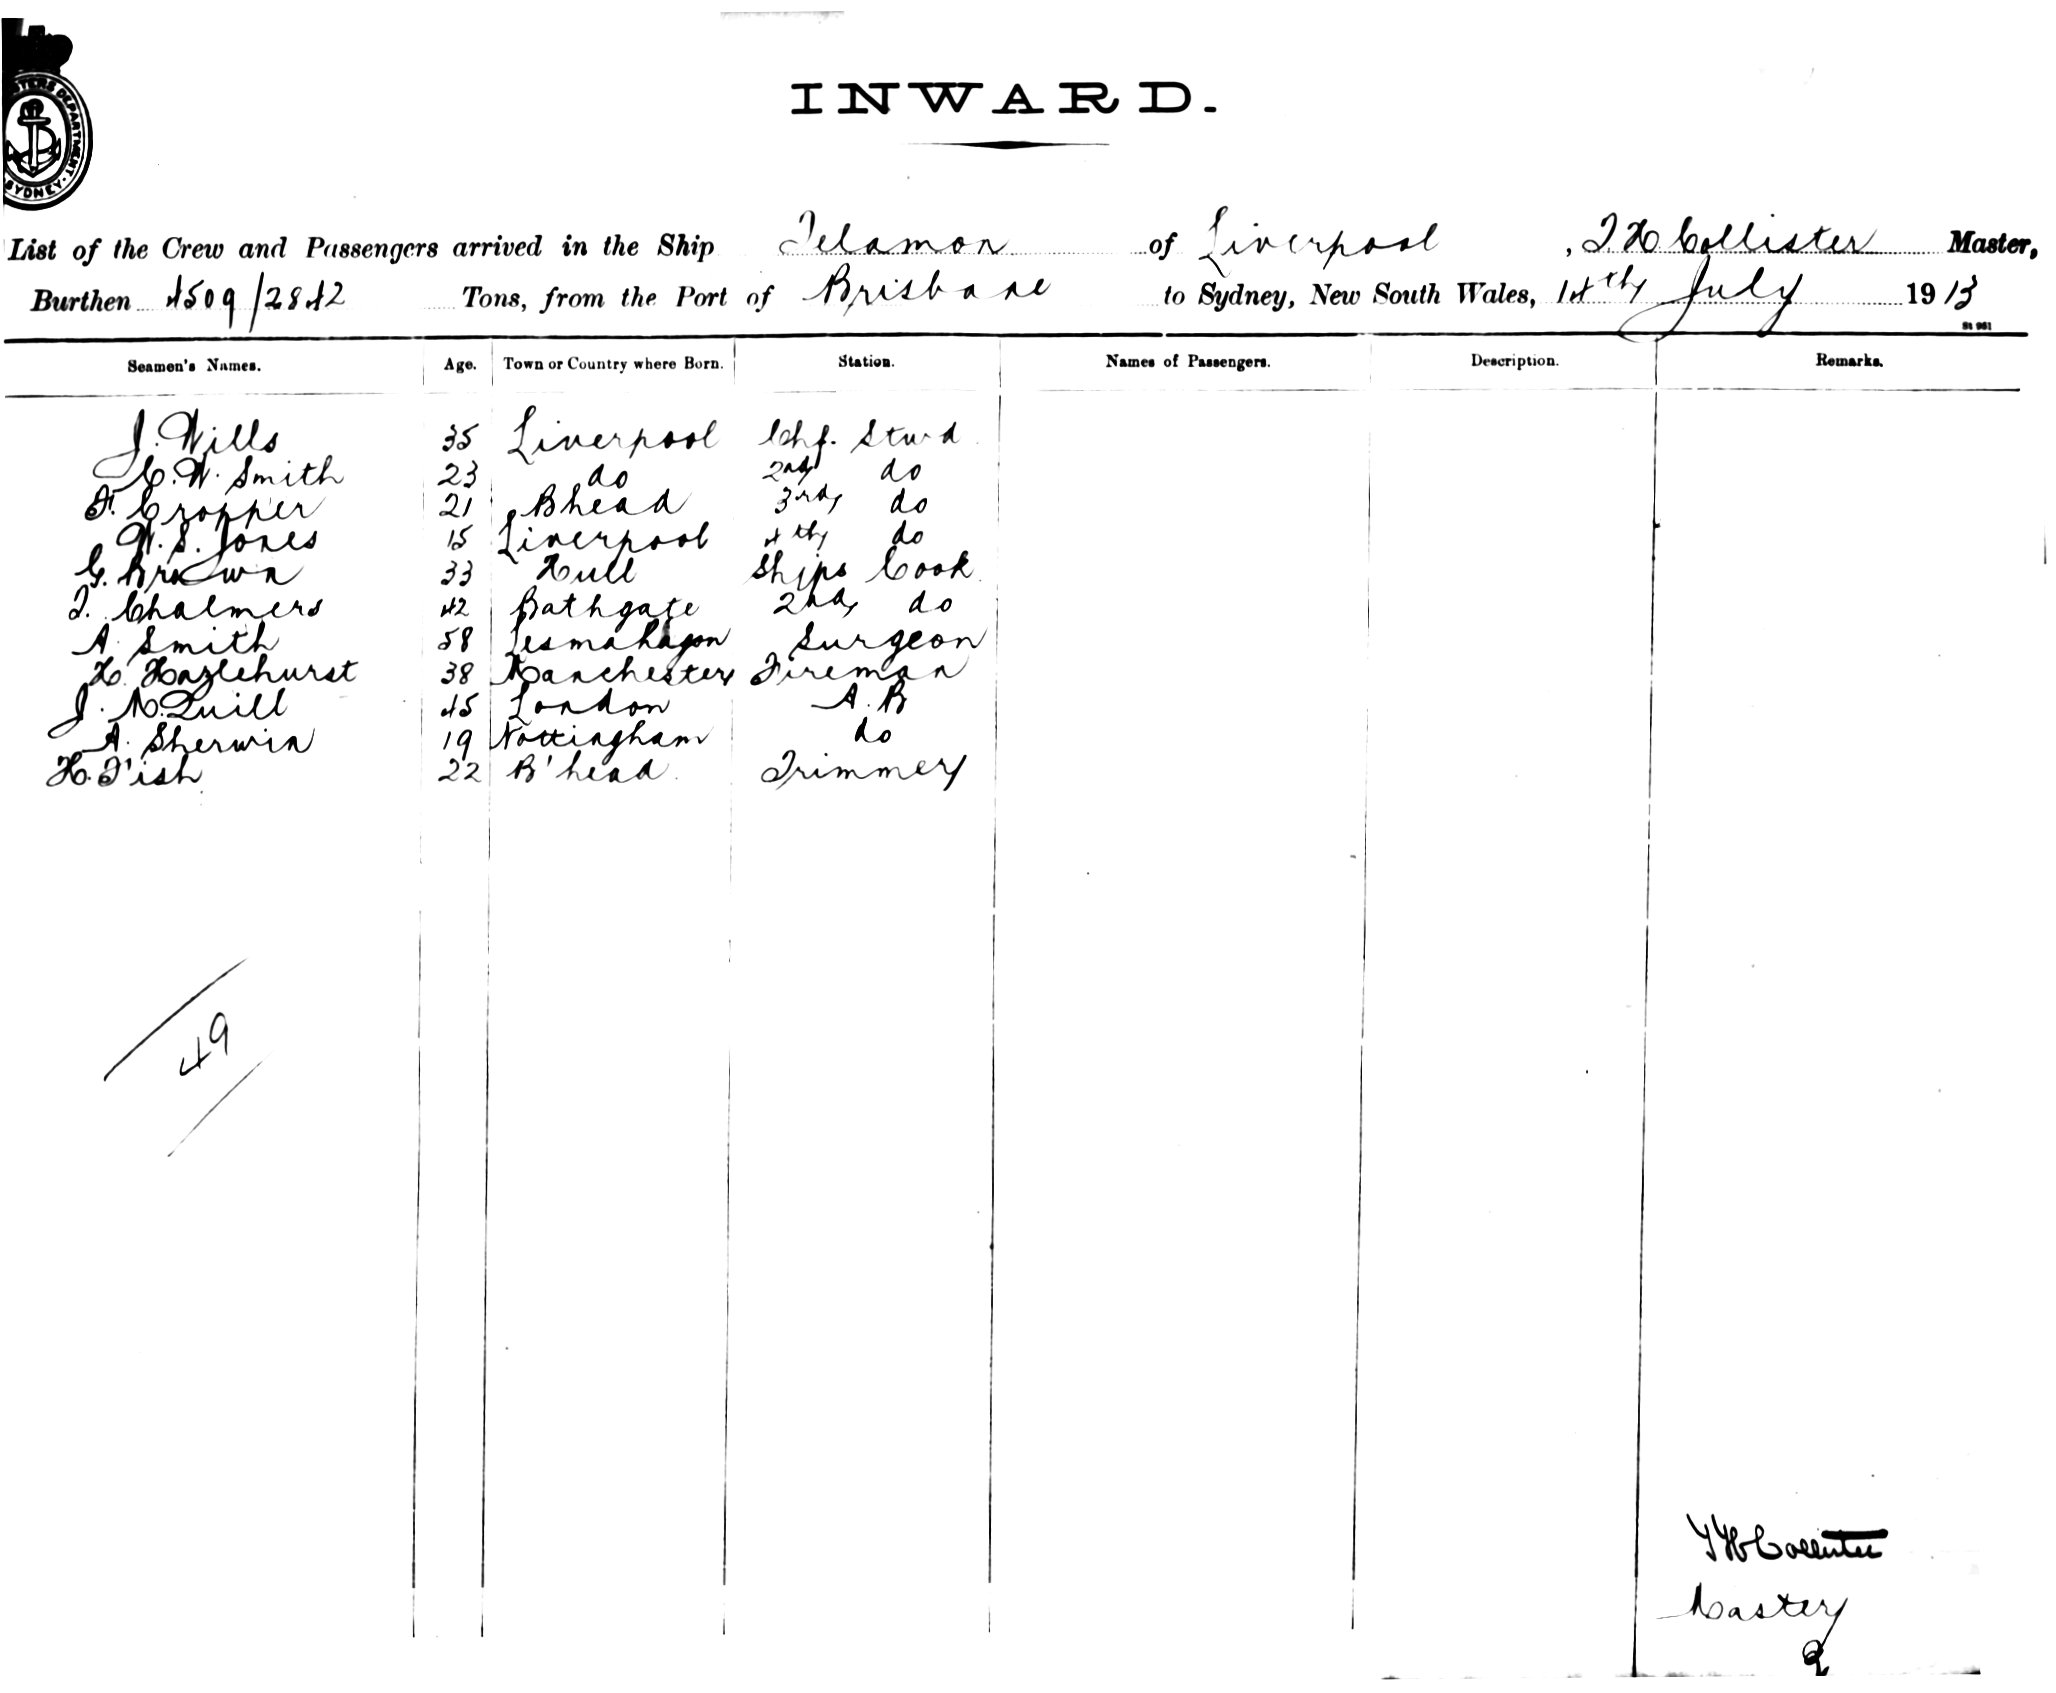 INWARD.
STERS DEPARTMENT. SYDNEY.
List of the Crew and Passengers arrived in the Ship Telamon of Liverpool, T H Collister Master,
Burthen 4509/2842 Tons, from the Port of Brisbane to Sydney, New South Wales, 14th July 1913
St 961
Seamen's Names. Age. Town or Country where Born. Station. Names of Passengers. Description. Remarks.
J. Wills 35 Liverpool Chf. Stwd
C. W. Smith 23 do 2nd do
F. Cropper 21 Bhead 3rd do
W. S. Jones 15 Liverpool 4th do
G. Brown 33 Hull Ships Cook
T. Chalmers 42 Bathgate 2nd do
A. Smith 58 Lesmahagon Surgeon
H. Hazlehurst 38 Manchester Fireman
J. McQuill 45 London A.B
A. Sherwin 19 Nottingham do
H. Fish 22 B'head Trimmer
49
T H Collister
Master